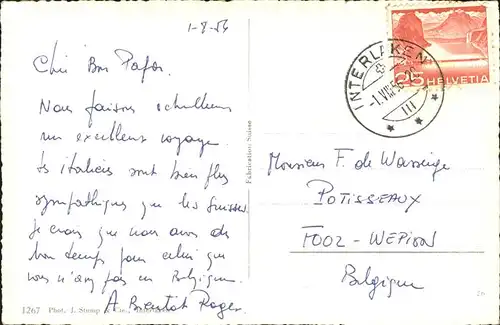 1-8-56
Cher Bon Papa.
Nous faisons
un excellent voyage.
Les italiens sont bien plus
sympathiques que les Suisses.
Je crois que nous avons du
bon temps pour celui que
vous n'avez pas en Belgique.
A Bientôt Roger
1267 Phot. J. Stump & Co.,
Fabrication Suisse
INTERLAKEN
-1.VIII.56
III
25 HELVETIA
Monsieur F. de Wasseige
POTISSEAUX
FOOZ-WEPION
Belgique